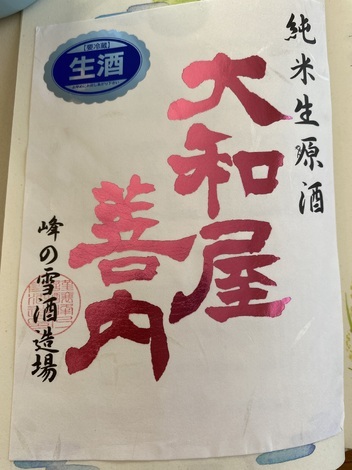 純米生原酒
大和屋
善内
峰の雪酒造場
【要冷蔵】
生酒